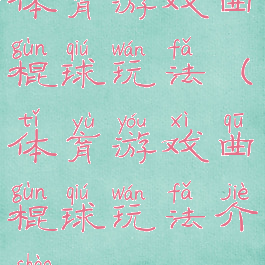 体育游戏曲
gùn qiú wán fǎ
棍球玩法（
tǐ yù yóu xì qū
体育游戏曲
gùn qiú wán fǎ jiè
棍球玩法介
shào